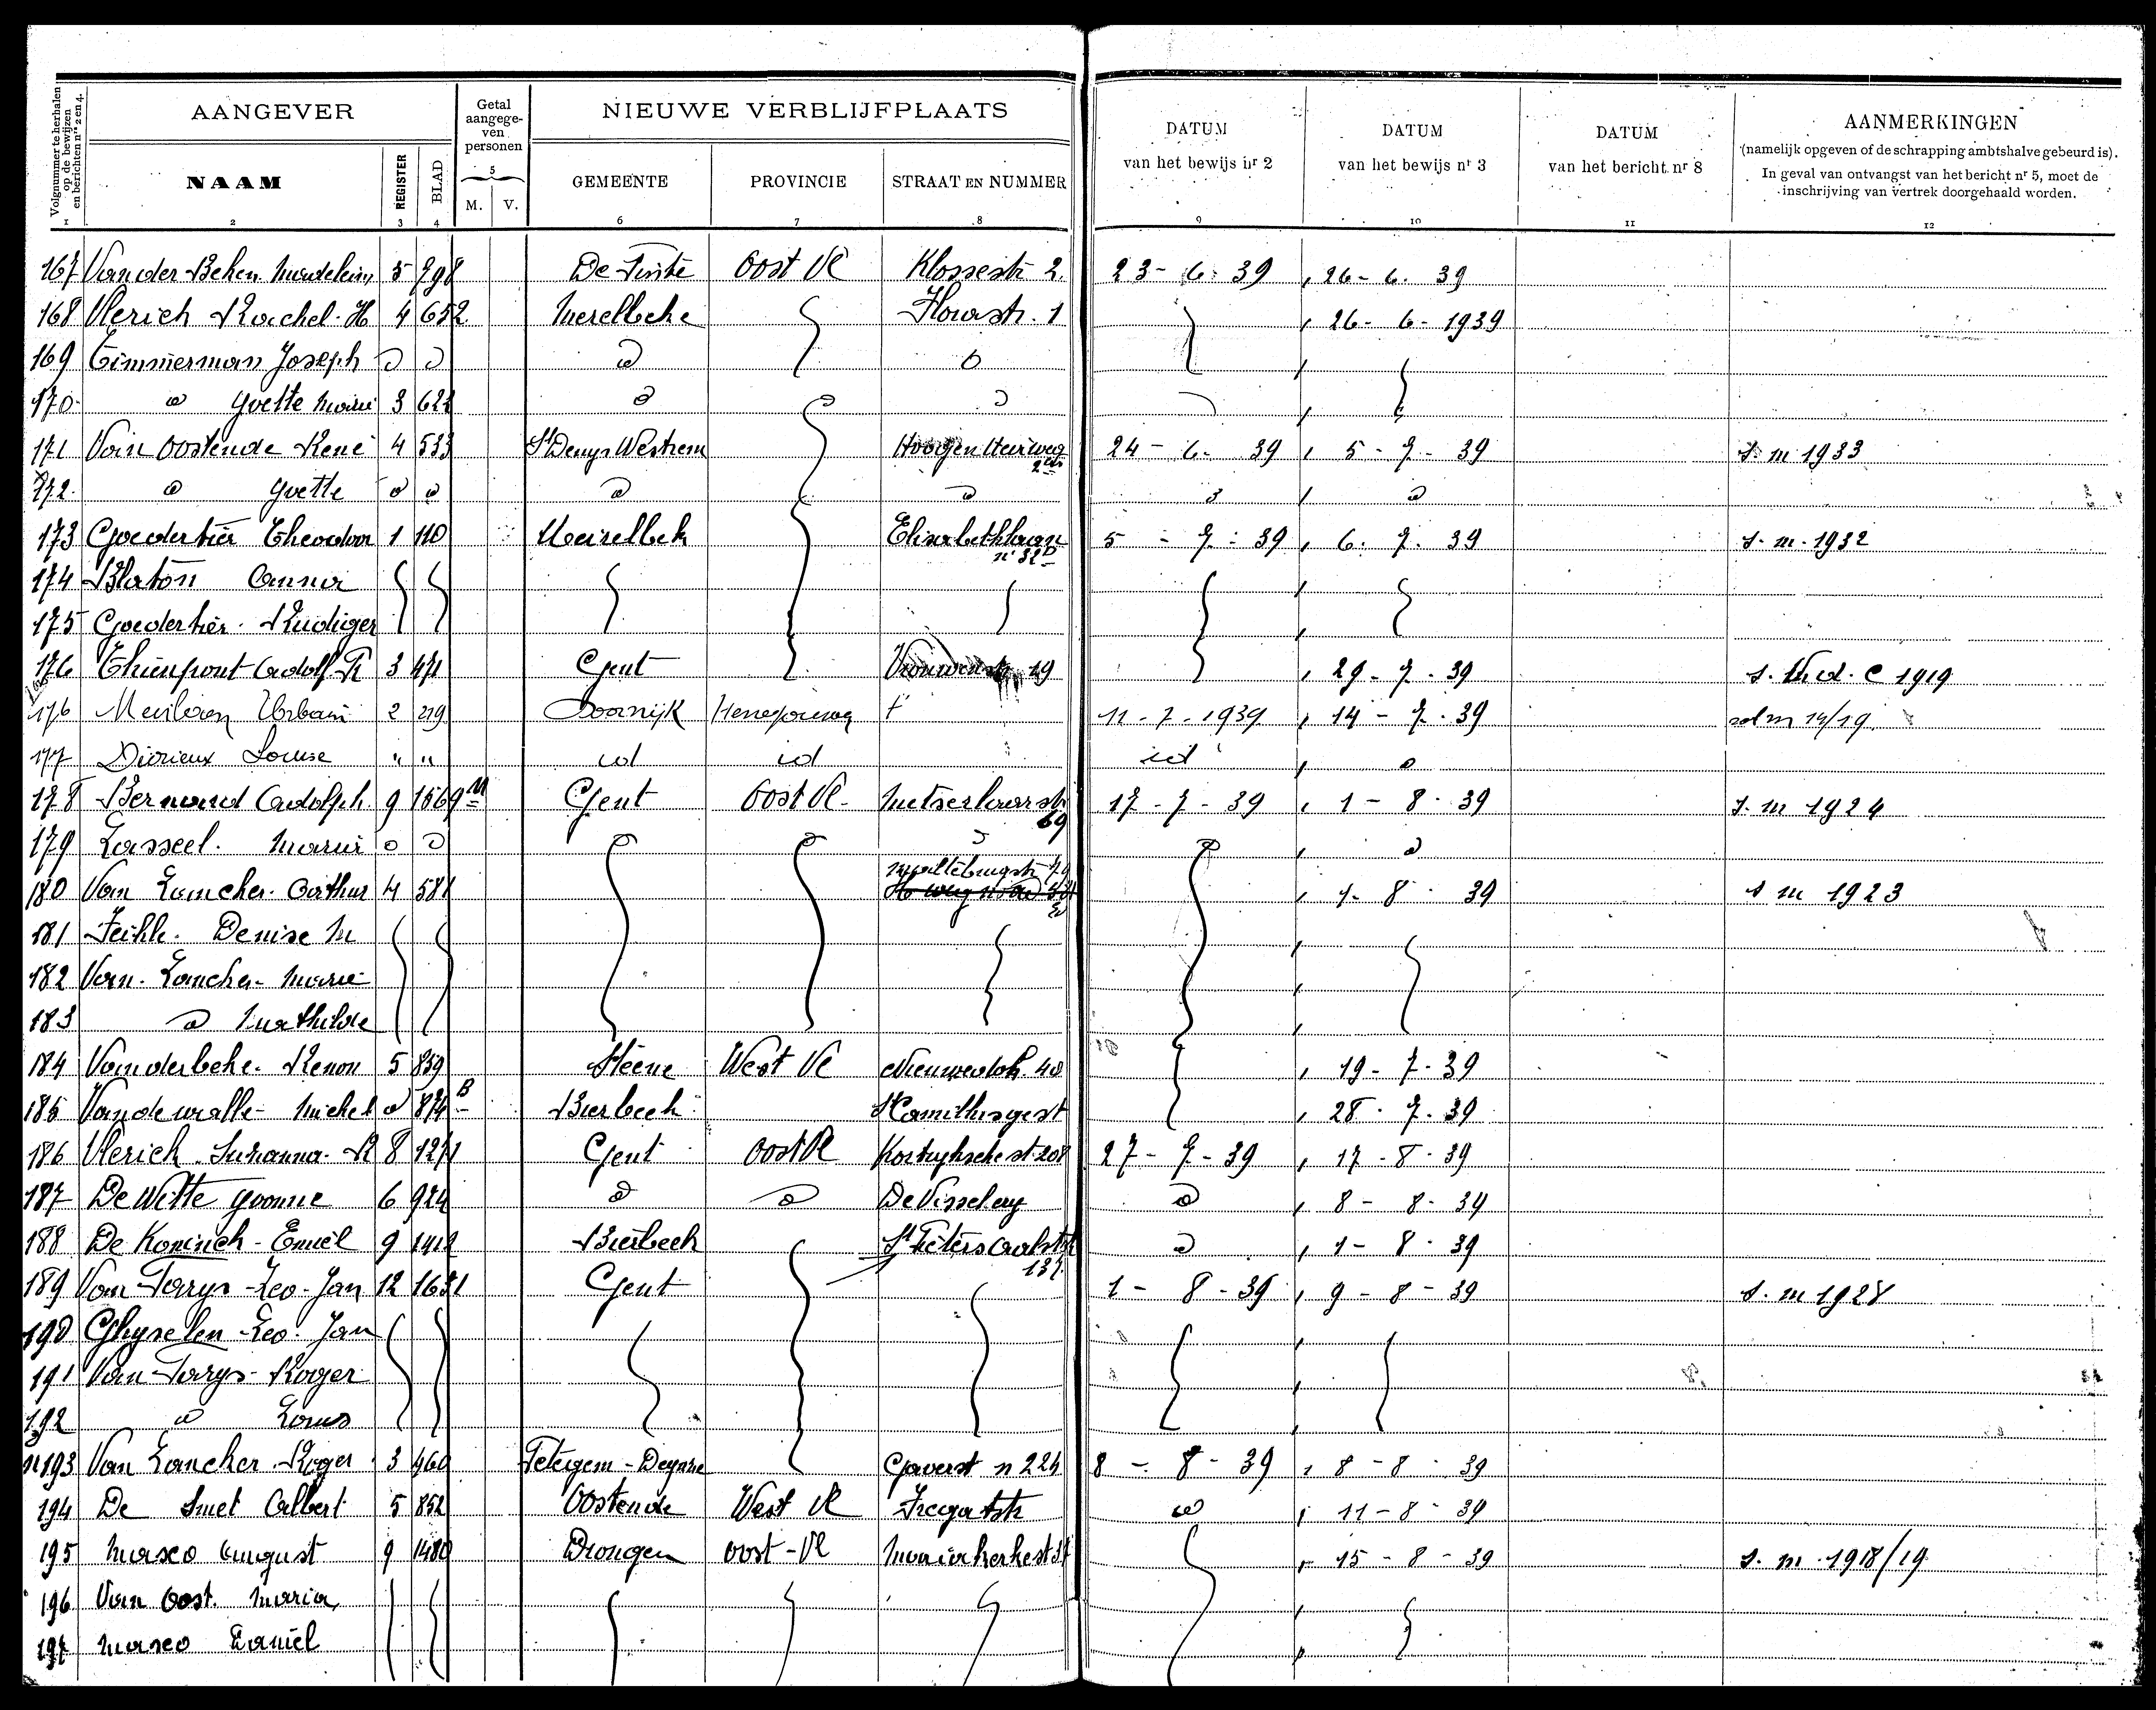 Volgnummer te herhalen op de bewijzen en berichten nrs 2 en 4.
AANGEVER
Getal aangegeven personen
NIEUWE VERBLIJFPLAATS
DATUM van het bewijs nr 2
DATUM van het bewijs nr 3
DATUM van het bericht nr 8
AANMERKINGEN
(namelijk opgeven of de schrapping ambtshalve gebeurd is).
In geval van ontvangst van het bericht nr 5, moet de inschrijving van vertrek doorgehaald worden.
NAAM REGISTER BLAD 5 M. V. GEMEENTE PROVINCIE STRAAT EN NUMMER
1 2 3 4 6 7 8 9 10 11 12
167 Van der Beken 5 798 Oost Vl 2 23-6-39 26-6-39
168 Vlerich Rachel H 4 652 Merelbeke 1 26-6-1939
169 Timmerman Joseph d d d d
170 d Yvette Marie 3 d d
171 Van Oostende René 4 533 St Denys Westrem Hoogen Heirweg 24-6-39 5-7-39 s. m 1933
172 d Yvette d d d d d d
173 Goedertier Theodoor 1 110 Meirelbek Elisabethlaan 5-7-39 6-7-39 s. m. 1932
174 Blaton Anna
175 Goedertier Rudiger
176 Thienpont Adolf R 3 471 Gent Vrouwenstr 19 29-7-39 1919
176 Urbain 2 219 Doornijk Henegouwen 11-7-1939 14-7-39 14/19
177 Dirieux Louise " " id id id d
178 Bernard Adolph 9 1569 Gent Oost Vl Metselaarstr 69 17-7-39 1-8-39 s. m 1924
179 Marie d d d d
180 Van Arthur 4 581 1-8-39 s m 1923
181 Denise M
182 Van Marie
183 d Mathilde
184 Vanderbeke Renon 5 859 Steene West Vl 40 19-7-39
185 Vandewalle Michel d 874 B Bierbeek St Camillusgest 28-7-39
186 Vlerich Suzanna R 8 1271 Gent Oost Vl Kortrijkschest 208 27-7-39 17-8-39
187 De Witte Yvonne 6 924 d d d 8-8-39
188 De Koninck Emiel 9 1412 Bierbeek d 1-8-39
189 Van Parys Leo Jan 12 1631 Gent St Pieters Aalststr 137 1-8-39 9-8-39 s. m 1928
190 Ghyselen Leo Jan
191 Van Parys Roger
192 d Louis
193 Van Roger 3 460 Petegem-Deynze Gaverst n 224 8-8-39 8-8-39
194 De Smet Albert 5 852 Oostende West Vl Fregatstr d 11-8-39
195 Masco August 9 1480 Drongen Oost-Vl Mariakerkest 15-8-39 s. m. 1918/19
196 Van Oost Maria
197 Masco Daniel